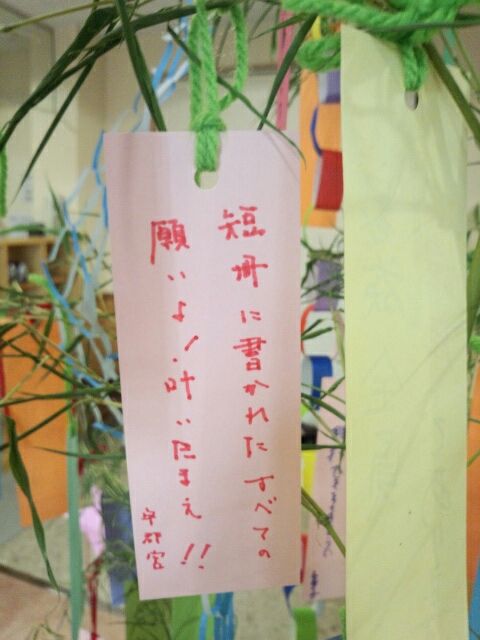 短冊に書かれたすべての
願いよ!叶いたまえ!!
宇都宮